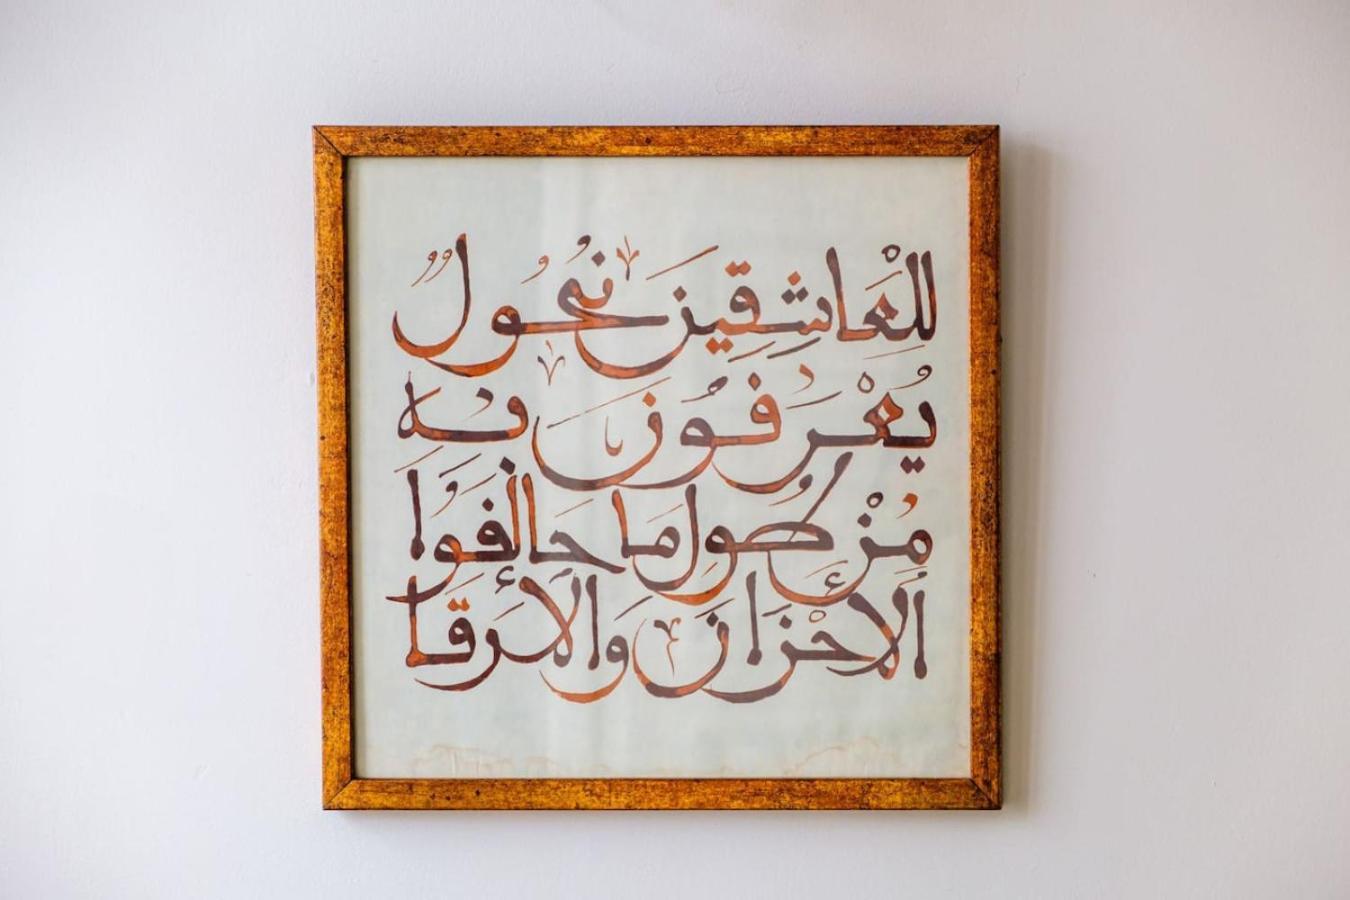 للْعَاشِقِينَ نُحُولٌ
يُعْرَفُونَ بِهِ
مِنْ طُولِ مَا حَالَفُوا
الْأَحْزَانَ وَالْأَرَقَا